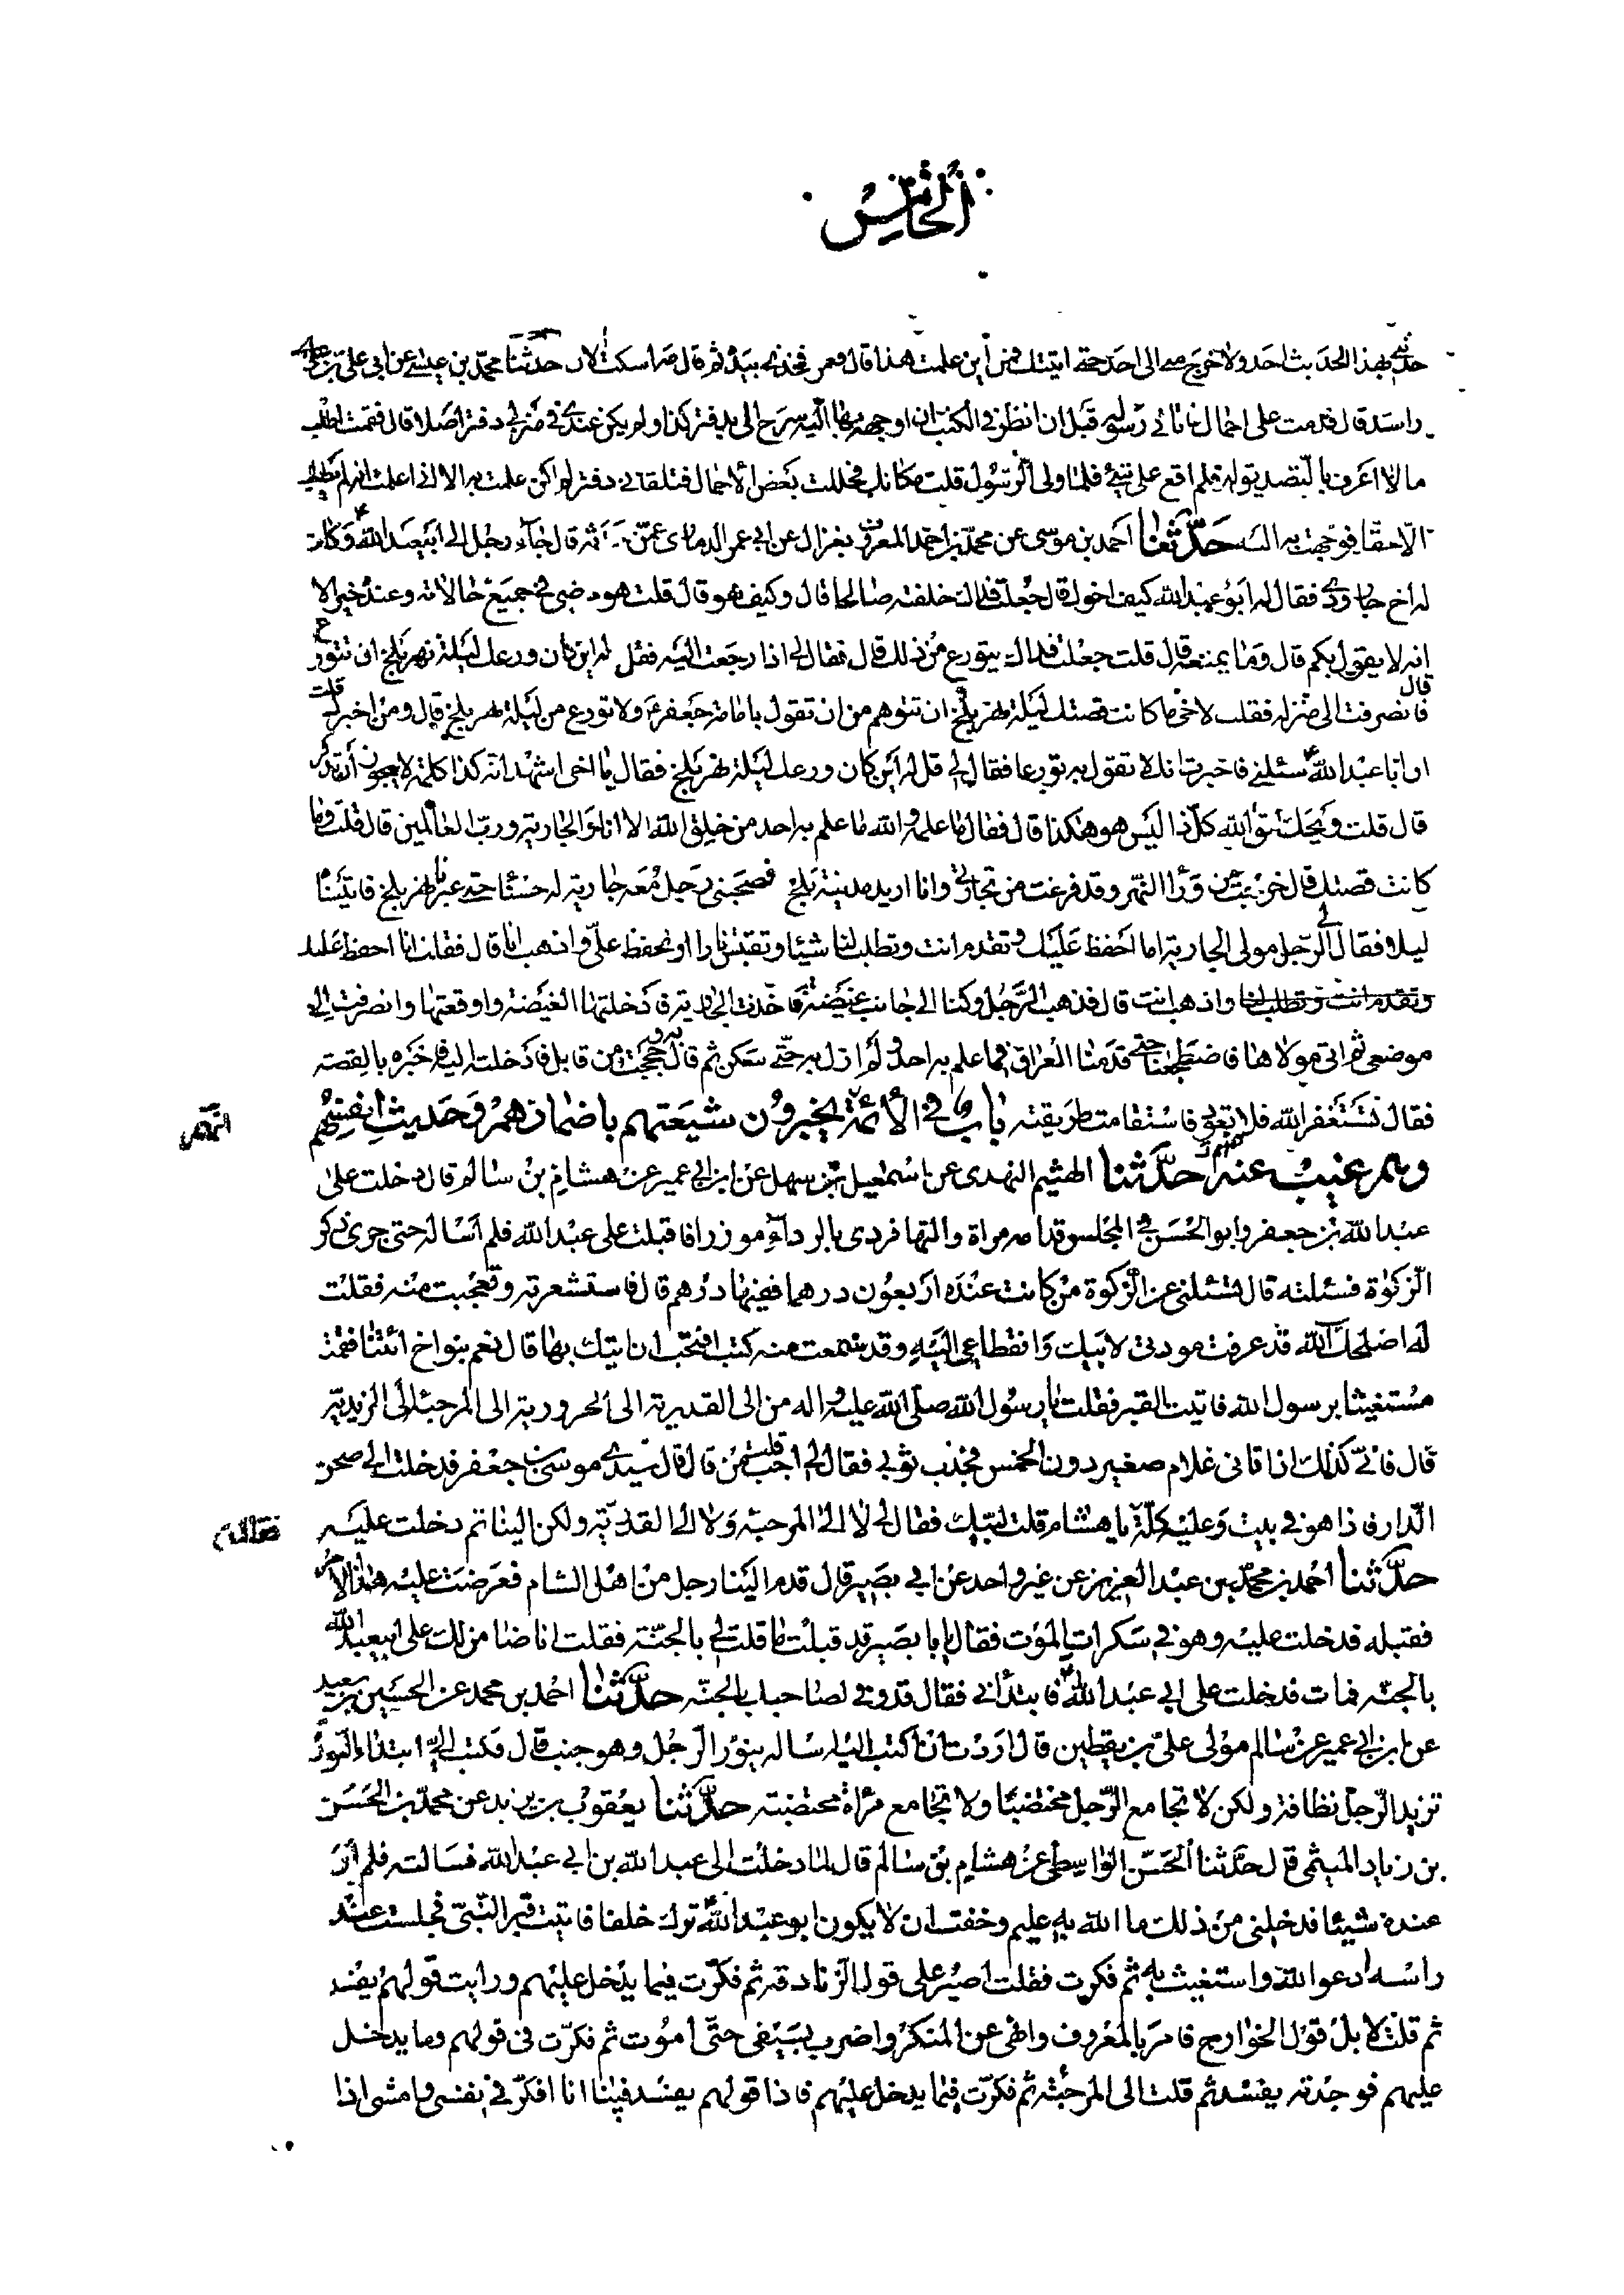 الخامس
حدثني بهذا الحديث احد ولا خرج مني الى احد حتى اتيتك فمن اين علمت هذا قال فغمز فخذه بيده ثم قال اسكت الان حدثنا محمد بن عيسى عن ابي علي بن
راشد قال قدمت على احمال فاتاني رسوله قبل ان انظر في الكتب ان اوجه بها اليه سرح الى بدفتر كذا ولم يكن عندي في منزلي دفتر اصلا قال فقمت اطلب
ما لا اعرف بالتصديق له فلم اقع على شيء فلما ولى الرسول قلت مكانك فحللت بعض الاحمال فتلقاني دفتر لم اكن علمت به الا اني اعلم انه لم يطلب
الا حقا فوجهت به اليه حدثنا احمد بن موسى عن محمد بن احمد المعروف بغزال عن ابي عمر الدماري عمن حدثه قال جاء رجل الى ابيعبد الله وكان
له اخ جارودي فقال له ابو عبد الله كيف اخوك قال جعلت فداك خلفته صالحا قال وكيف هو قال قلت هو رضي في جميع حالاته وعنده خير الا
انه لا يقول بكم قال وما يمنعه قال قلت جعلت فداك يتورع من ذلك قال فقال لي اذا رجعت اليه فقل له اين كان ورعك ليلة نهر بلخ ان تتورع
قال
فانصرفت الى منزله فقلت لاخي ما كانت قصتك ليلة نهر بلخ ان تتوهم من ان تقول بامامة جعفر ولا تورع من ليلة نهر بلخ قال ومن اخبرك قلت
ان ابا عبد الله سئلني فاخبرت انك لا تقول به تورعا فقال لي قل له اين كان ورعك ليلة نهر بلخ فقال يا اخي اشهد انه كذا كلمة لا يجوز ان تذكر
قال قلت ويحك اتق الله كل ذا ليس هو هكذا قال فقال ما علمه والله ما علم به احد من خلق الله الا انا والجارية ورب العالمين قال قلت وما
كانت قصتك قال خرجت من وراء النهر وقد فرغت من تجارتي وانا اريد مدينة بلخ فصحبني رجل معه جارية له حسناء حتى عبرنا نهر بلخ فاتيناه
ليلا فقال لي الرجل مولى الجارية اما احفظ عليك وتقدم انت وتطلب لنا شيئا وتقتبس نارا او تحفظ علي واذهب انا قال فقلت انا احفظ عليك
وتقدم انت وتطلب لنا واذهب انت قال فذهب الرجل وكنا الى جانب غيضة فاخذت الجارية فادخلتها الغيضة وواقعتها وانصرفت الى
موضعي ثم اتى مولاها فاضطجعنا حتى قدمنا العراق فما علم به احد ولم ازل به حتى سكن ثم قال به وحججت من قابل فادخلته اليه فاخبره بالقصة
فقال تستغفر الله فلا تعود فاستقامت طريقته باب في الائمة يخبرون شيعتهم باضمارهم وحديث انفسهم
وهم غيب عنهم حدثنا الهيثم النهدي عن اسمعيل بن سهل عن ابن ابي عمير عن هشام بن سالم قال دخلت على
عبد الله بن جعفر وابو الحسن في المجلس قدامه مراة والتها فردى بالرداء موزرا فاقبلت على عبد الله فلم اساله حتى جرى ذكر
الزكوة فسئلته قال تسئلني عن الزكوة من كانت عنده اربعون درهما ففيها درهم قال فاستشعرته وتعجبت منه فقلت
له اصلحك الله قد عرفت مودتي لابيك وانقطاعي اليه وقد سمعت منه كتب افتحب ان اتيك بها قال نعم بنو اخ ائتنا فقمت
مستغيثا برسول الله فاتيت القبر فقلت يا رسول الله صلى الله عليه واله من الى القدرية الى الحرورية الى المرجئة الى الزيدية
قال فاني كذلك اذا اتاني غلام صغير دون الخمس فجذب ثوبي فقال لي اجب قلت من قال قال سيدي موسى بن جعفر فدخلت الى صحن
الدار فاذا هو في بيت وعليه كلة يا هشام قلت لبيك فقال لي لا الى المرجئة ولا الى القدرية ولكن الينا ثم دخلت عليه
فقال
حدثنا احمد بن محمد بن عبد العزيز عن غير واحد عن ابي بصير قال قدم الينا رجل من اهل الشام فعرضت عليه هذا الامر
فقبله فدخلت عليه وهو في سكرات الموت فقال يا ابا بصير قد قبلت ما قلت لي بالجنة فقلت انا ضامن لك على ابيعبد الله
بالجنة فمات فدخلت على ابي عبد الله فابتداني فقال قد وفي لصاحبك بالجنة حدثنا احمد بن محمد عن الحسين بن سعيد
عن ابن ابي عمير عن سالم مولى علي بن يقطين قال اردت ان اكتب اليه اساله يتنور الرجل وهو جنب قال فكتب الي ابتداء النورة
تزيد الرجل نظافة ولكن لا تجامع الرجل مختضبا ولا تجامع مراة مختضبة حدثنا يعقوب بن يزيد عن محمد بن الحسن
بن زياد الميثمي قال حدثنا الحسن الواسطي عن هشام بن سالم قال لما دخلت الى عبد الله بن ابي عبد الله فسالته فلم ار
عنده شيئا فدخلني من ذلك ما الله به عليم وخفت ان لا يكون ابو عبد الله ترك خلفا فاتيت قبر النبي فجلست عند
راسه ادعوا الله واستغيث به ثم فكرت فقلت اصير على قول الزنادقة ثم فكرت فيما يدخل عليهم ورايت قولهم يفسد
ثم قلت لا بل قول الخوارج فامر بالمعروف وانهى عن المنكر واضرب بسيفي حتى اموت ثم فكرت في قولهم وما يدخل
عليهم فوجدته يفسد ثم قلت الى المرجئة ثم فكرت فيما يدخل عليهم فاذا قولهم يفسد فبينا انا افكر في نفسي وامشي اذا